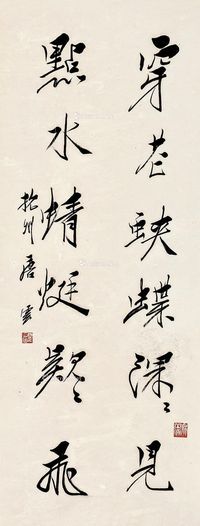 穿花蛺蝶深〻見
點水蜻蜓款〻飛
杭州唐雲